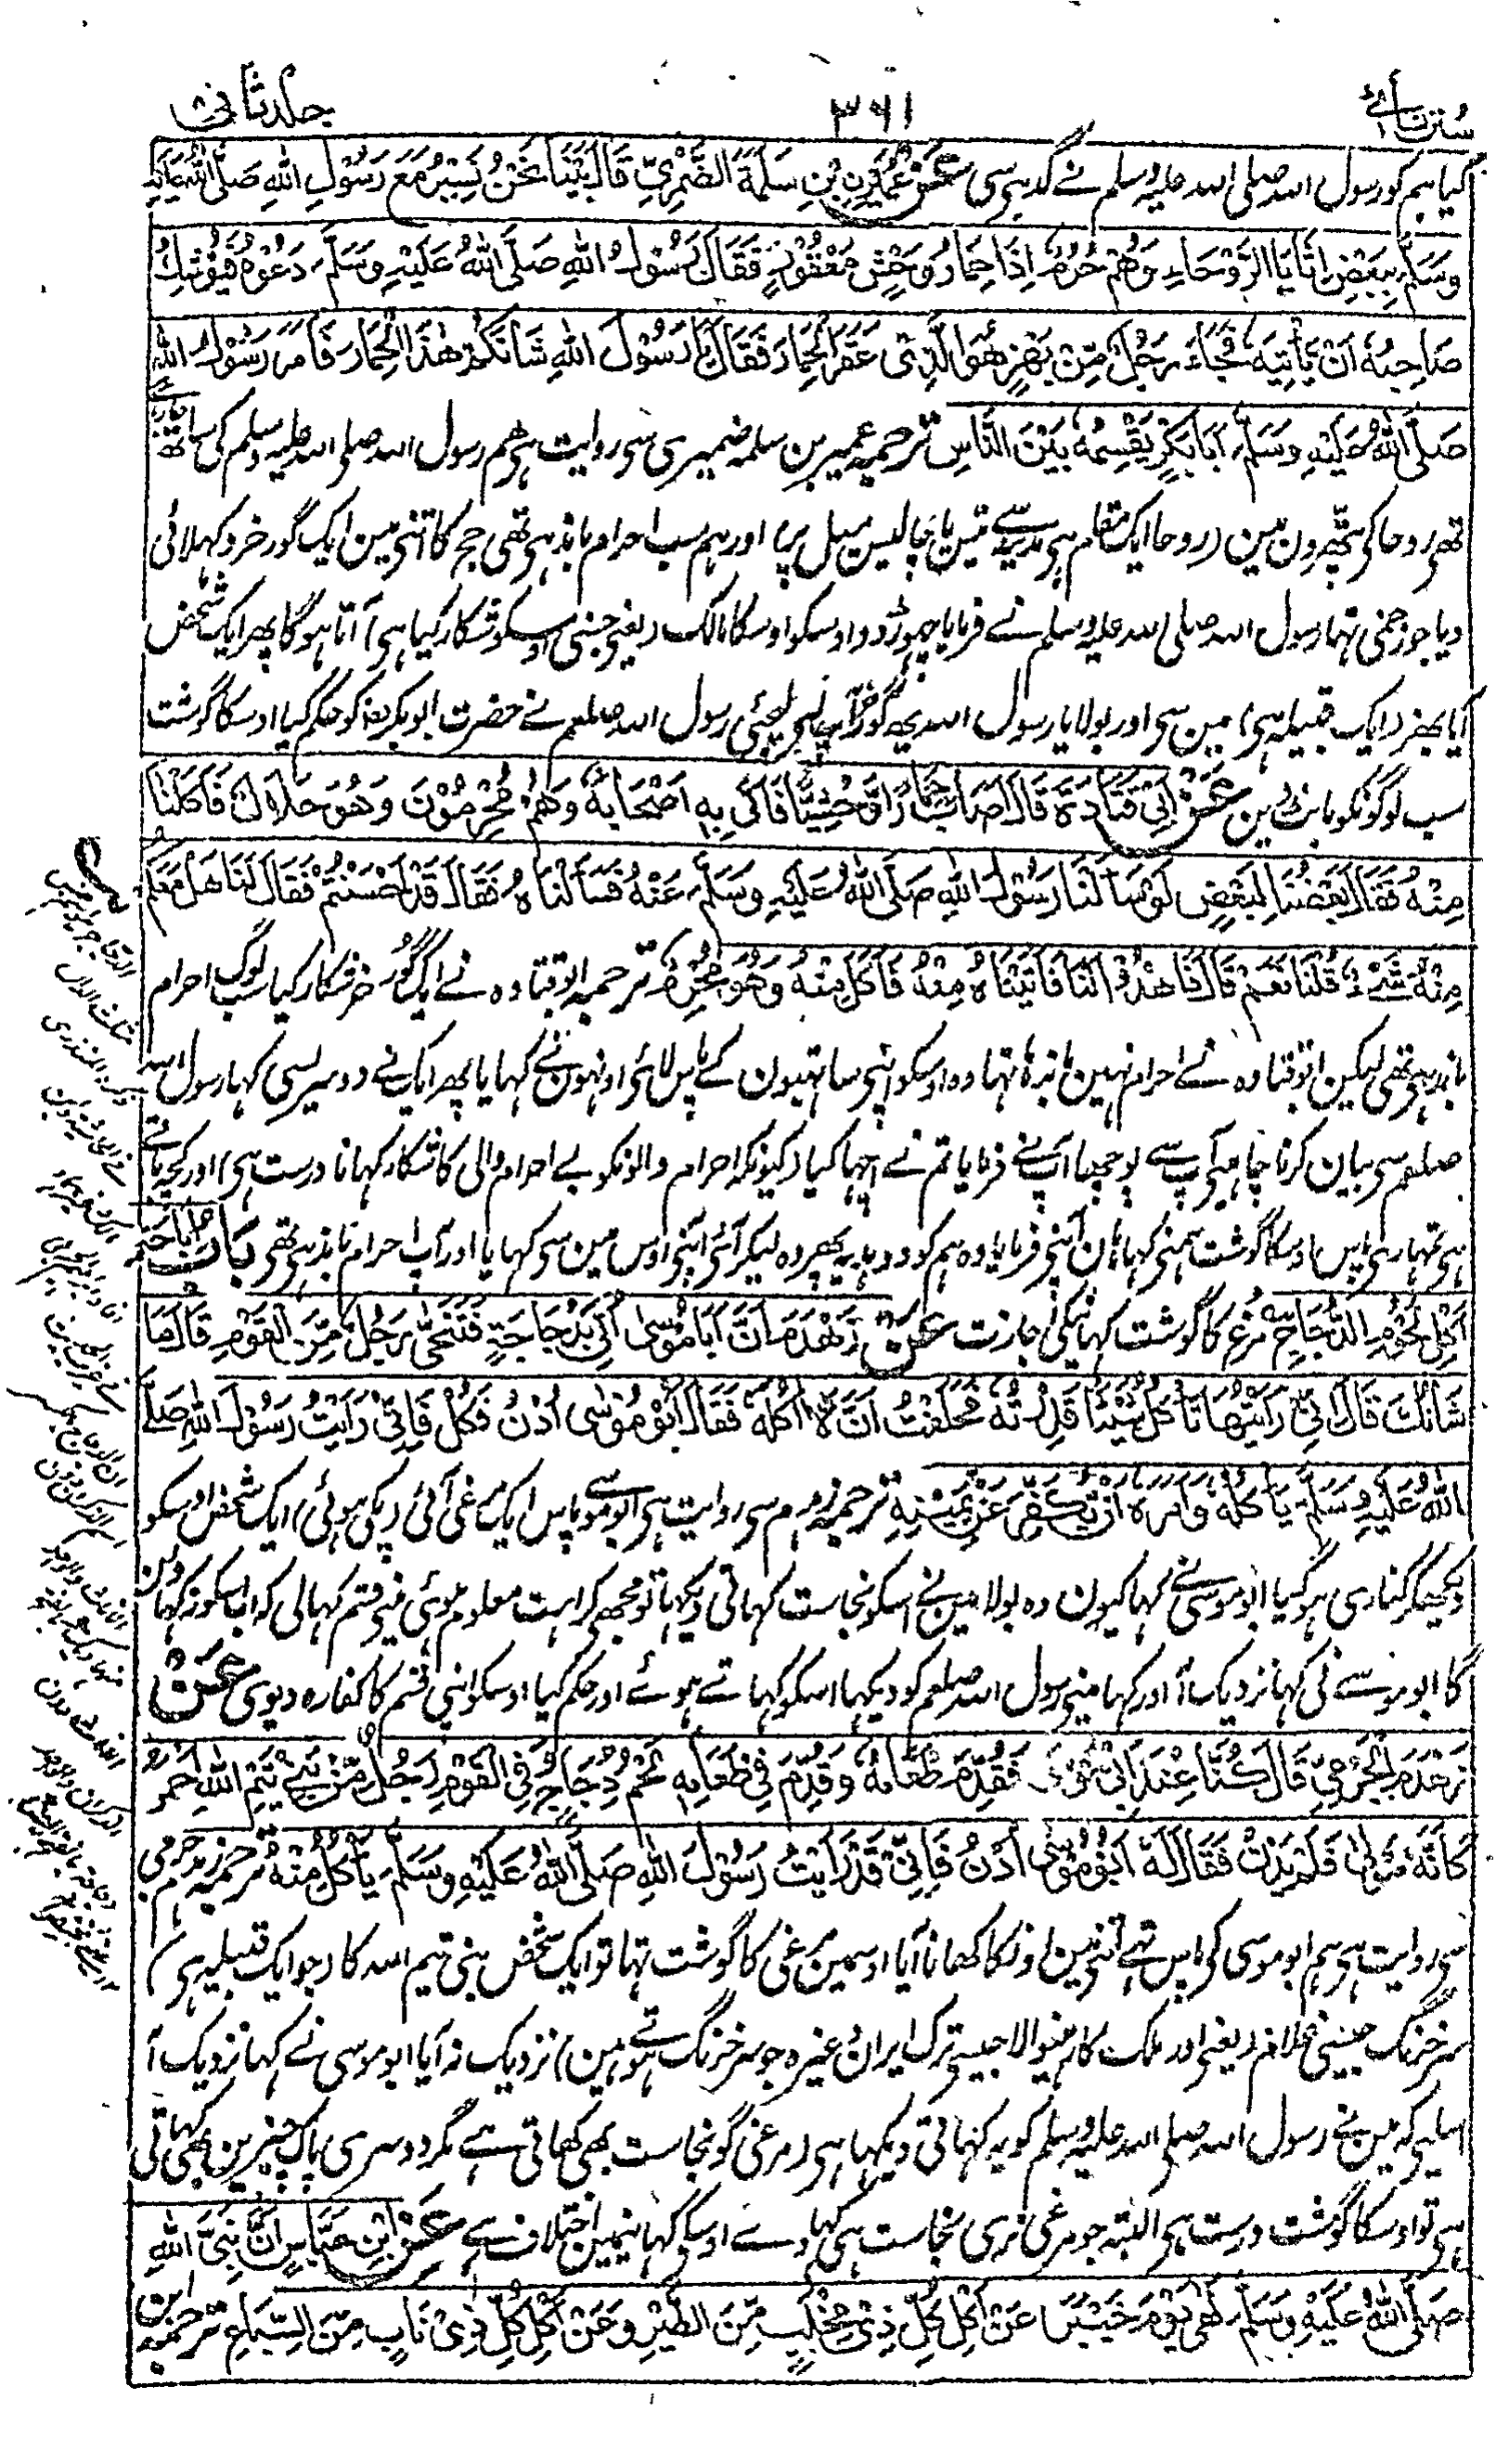 سنن نسائی ۳۶۱ جلد ثانی
کیا ہم کو رسول اللہ صلی اللہ علیہ وسلم نے گدہی سی عَنْ عُمَيْرِ بْنِ سَلَمَةَ الضَّمْرِيِّ قَالَ بَيْنَا نَحْنُ نَسِيْرُ مَعَ رَسُوْلِ اللهِ صَلَّى اللهُ عَلَيْهِ
وَسَلَّمَ بِبَعْضِ اَثَايَا الرَّوْحَاءِ وَهُمْ حُرُمٌ اِذَا حِمَارُ وَحْشٍ مَعْقُوْرٌ فَقَالَ رَسُوْلُ اللهِ صَلَّى اللهُ عَلَيْهِ وَسَلَّمَ دَعُوْهُ فَيُوْشِكُ
صَاحِبُهٗ اَنْ يَّأْتِيَهٗ فَجَاءَ رَجُلٌ مِّنْ بَهْزٍ هُوَ الَّذِىْ عَقَرَ الْحِمَارَ فَقَالَ يَا رَسُوْلَ اللهِ شَانَكُمْ هٰذَا الْحِمَارَ فَاَمَرَ رَسُوْلُ اللهِ
صَلَّى اللهُ عَلَيْهِ وَسَلَّمَ اَبَا بَكْرٍ يَقْسِمُهٗ بَيْنَ النَّاسِ ترجمہ عمیر بن سلمہ ضمیری سی روایت ہی ہم رسول اللہ صلی اللہ علیہ وسلم کی ساتھ جارہے
تھی روحا کی پتھرون مین (روحا ایک مقام ہی مدینے سے تیس یا چالیس میل پر) اور ہم سب احرام باندہی تھی حج کا اتنی مین ایک گورخر دکہلائی
دیا جو زخمی تہا رسول اللہ صلی اللہ علیہ وسلم نے فرمایا چہوڑ دو اوسکو اوسکا مالک (یعنی جسنی اوسکو شکار کیا ہی) آتا ہوگا پہر ایک شخص
آیا بہز (ایک قبیلہ ہی) مین سی اور بولا یا رسول اللہ یہ گورخر آپ لیجئی رسول اللہ صلعم نے حضرت ابوبکرؓ کو حکم کیا اوسکا گوشت
سب لوگونکو بانٹ دین عَنْ اَبِىْ قَتَادَةَ قَالَ اَصَابَ حِمَارًا وَّحْشِيًّا فَاَتٰى بِهٖ اَصْحَابَهٗ وَهُمْ مُحْرِمُوْنَ وَهُوَ حَلَالٌ فَاَكَلْنَا
مِنْهُ فَقَالَ بَعْضُنَا لِبَعْضٍ لَوْ سَاَلْنَا رَسُوْلَ اللهِ صَلَّى اللهُ عَلَيْهِ وَسَلَّمَ عَنْهُ فَسَاَلْنَاهُ فَقَالَ قَدْ اَحْسَنْتُمْ فَقَالَ لَنَا هَلْ مَعَكُمْ
مِنْهُ شَيْءٌ قُلْنَا نَعَمْ قَالَ فَاهْدُوْا لَنَا فَاَتَيْنَاهُ مِنْهُ فَاَكَلَ مِنْهُ وَهُوَ مُحْرِمٌ ترجمہ ابوقتادہ نے ایک گورخر شکار کیا سب لوگ احرام
باندہی تھی لیکن ابوقتادہ نے احرام نہین باندہا تہا وہ اوسکو اپنی ساتہیون کے پاس لائی اونہون نے کہایا پہر ایک نے دوسری سی کہا رسول اللہ
صلعم سی بیان کرنا چاہئی آپ سے پوچہا آپ نے فرمایا تم نے اچہا کیا (کیونکہ احرام والونکو بے احرام والی کا شکار کہانا درست ہی) اور کچہ باقے
ہی تمہاری پاس اوسکا گوشت ہمنی کہا ہان آپنی فرمایا وہ ہم کو دو ہدیہ پہر وہ لیکر آئی آپنی اوس مین سی کہایا اور آپ احرام باندہی تھی بَابُ اِبَاحَةِ
اَكْلِ لُحُوْمِ الدَّجَاجِ مرغ کا گوشت کہانیکی اجازت عَنْ زَهْدَمٍ اَنَّ اَبَا مُوْسٰى اُتِىَ بِدَجَاجَةٍ فَتَنَحّٰى رَجُلٌ مِّنَ الْقَوْمِ قَالَ مَا
شَانُكَ قَالَ اِنِّىْ رَاَيْتُهَا تَاْكُلُ شَيْئًا قَذِرْتُهٗ فَحَلَفْتُ اَنْ لَّا اٰكُلَهٗ فَقَالَ اَبُوْ مُوْسٰى اُدْنُ فَكُلْ فَاِنِّىْ رَاَيْتُ رَسُوْلَ اللهِ صَلَّى
اللهُ عَلَيْهِ وَسَلَّمَ يَاْكُلُهٗ وَاَمَرَهٗ اَنْ يُّكَفِّرَ عَنْ يَّمِيْنِهٖ ترجمہ زہدم سی روایت ہی ابوموسے پاس ایک مرغی آئی (پکی ہوئی) ایک شخص اوسکو
دیکہکر کناری ہوگیا ابوموسی نے کہا کیون وہ بولا مین نے اسکو نجاست کہاتی دیکہا تو مجھی کراہت معلوم ہوئی مینی قسم کہالی کہ اب اسکو نہ کہاؤن
گا ابوموسے نی کہا نزدیک آ اور کہا مینی رسول اللہ صلعم کو دیکہا اسکو کہاتے ہوئے اور حکم کیا اوسکو اپنی قسم کا کفارہ دیوی عَنْ
زَهْدَمٍ الْجَرْمِىِّ قَالَ كُنَّا عِنْدَ اَبِىْ مُوْسٰى فَقُدِّمَ طَعَامُهٗ وَقُدِّمَ فِىْ طَعَامِهٖ لَحْمُ دَجَاجٍ وَّفِى الْقَوْمِ رَجُلٌ مِّنْ بَنِىْ تَيْمِ اللهِ اَحْمَرُ
كَاَنَّهٗ مَوْلًى فَلَمْ يَدْنُ فَقَالَ لَهٗ اَبُوْ مُوْسٰى اُدْنُ فَاِنِّىْ قَدْ رَاَيْتُ رَسُوْلَ اللهِ صَلَّى اللهُ عَلَيْهِ وَسَلَّمَ يَاْكُلُ مِنْهُ ترجمہ زہدم جرمی
سی روایت ہی ہم ابوموسی کی پاس تہے اتنی مین اونکا کھانا آیا اوسمین مرغی کا گوشت تہا تو ایک شخص بنی تیم اللہ کا (جو ایک قبیلہ ہی)
سرخ رنگ جیسی غلام (یعنی اور ملک کا رہنیوالا جیسی ترک ایران وغیرہ جو سرخ رنگ ہوتے ہین) نزدیک نہ آیا ابوموسی نے کہا نزدیک آ
اسلیی کہ مین نے رسول اللہ صلی اللہ علیہ وسلم کو یہ کہاتی دیکہا ہی (مرغی گو نجاست بھی کھاتی ہے مگر دوسری پاک چیزین بھی کہاتی
ہی تو اوسکا گوشت درست ہی البتہ جو مرغی نری نجاست ہی کہاوے اوسکی کہانیمین اختلاف ہے عَنْ ابْنِ عَبَّاسٍ اَنَّ نَبِىَّ اللهِ
صَلَّى اللهُ عَلَيْهِ وَسَلَّمَ نَهٰى يَوْمَ خَيْبَرَ عَنْ اَكْلِ كُلِّ ذِىْ مِخْلَبٍ مِّنَ الطَّيْرِ وَعَنْ اَكْلِ كُلِّ ذِىْ نَابٍ مِّنَ السِّبَاعِ ترجمہ ابن